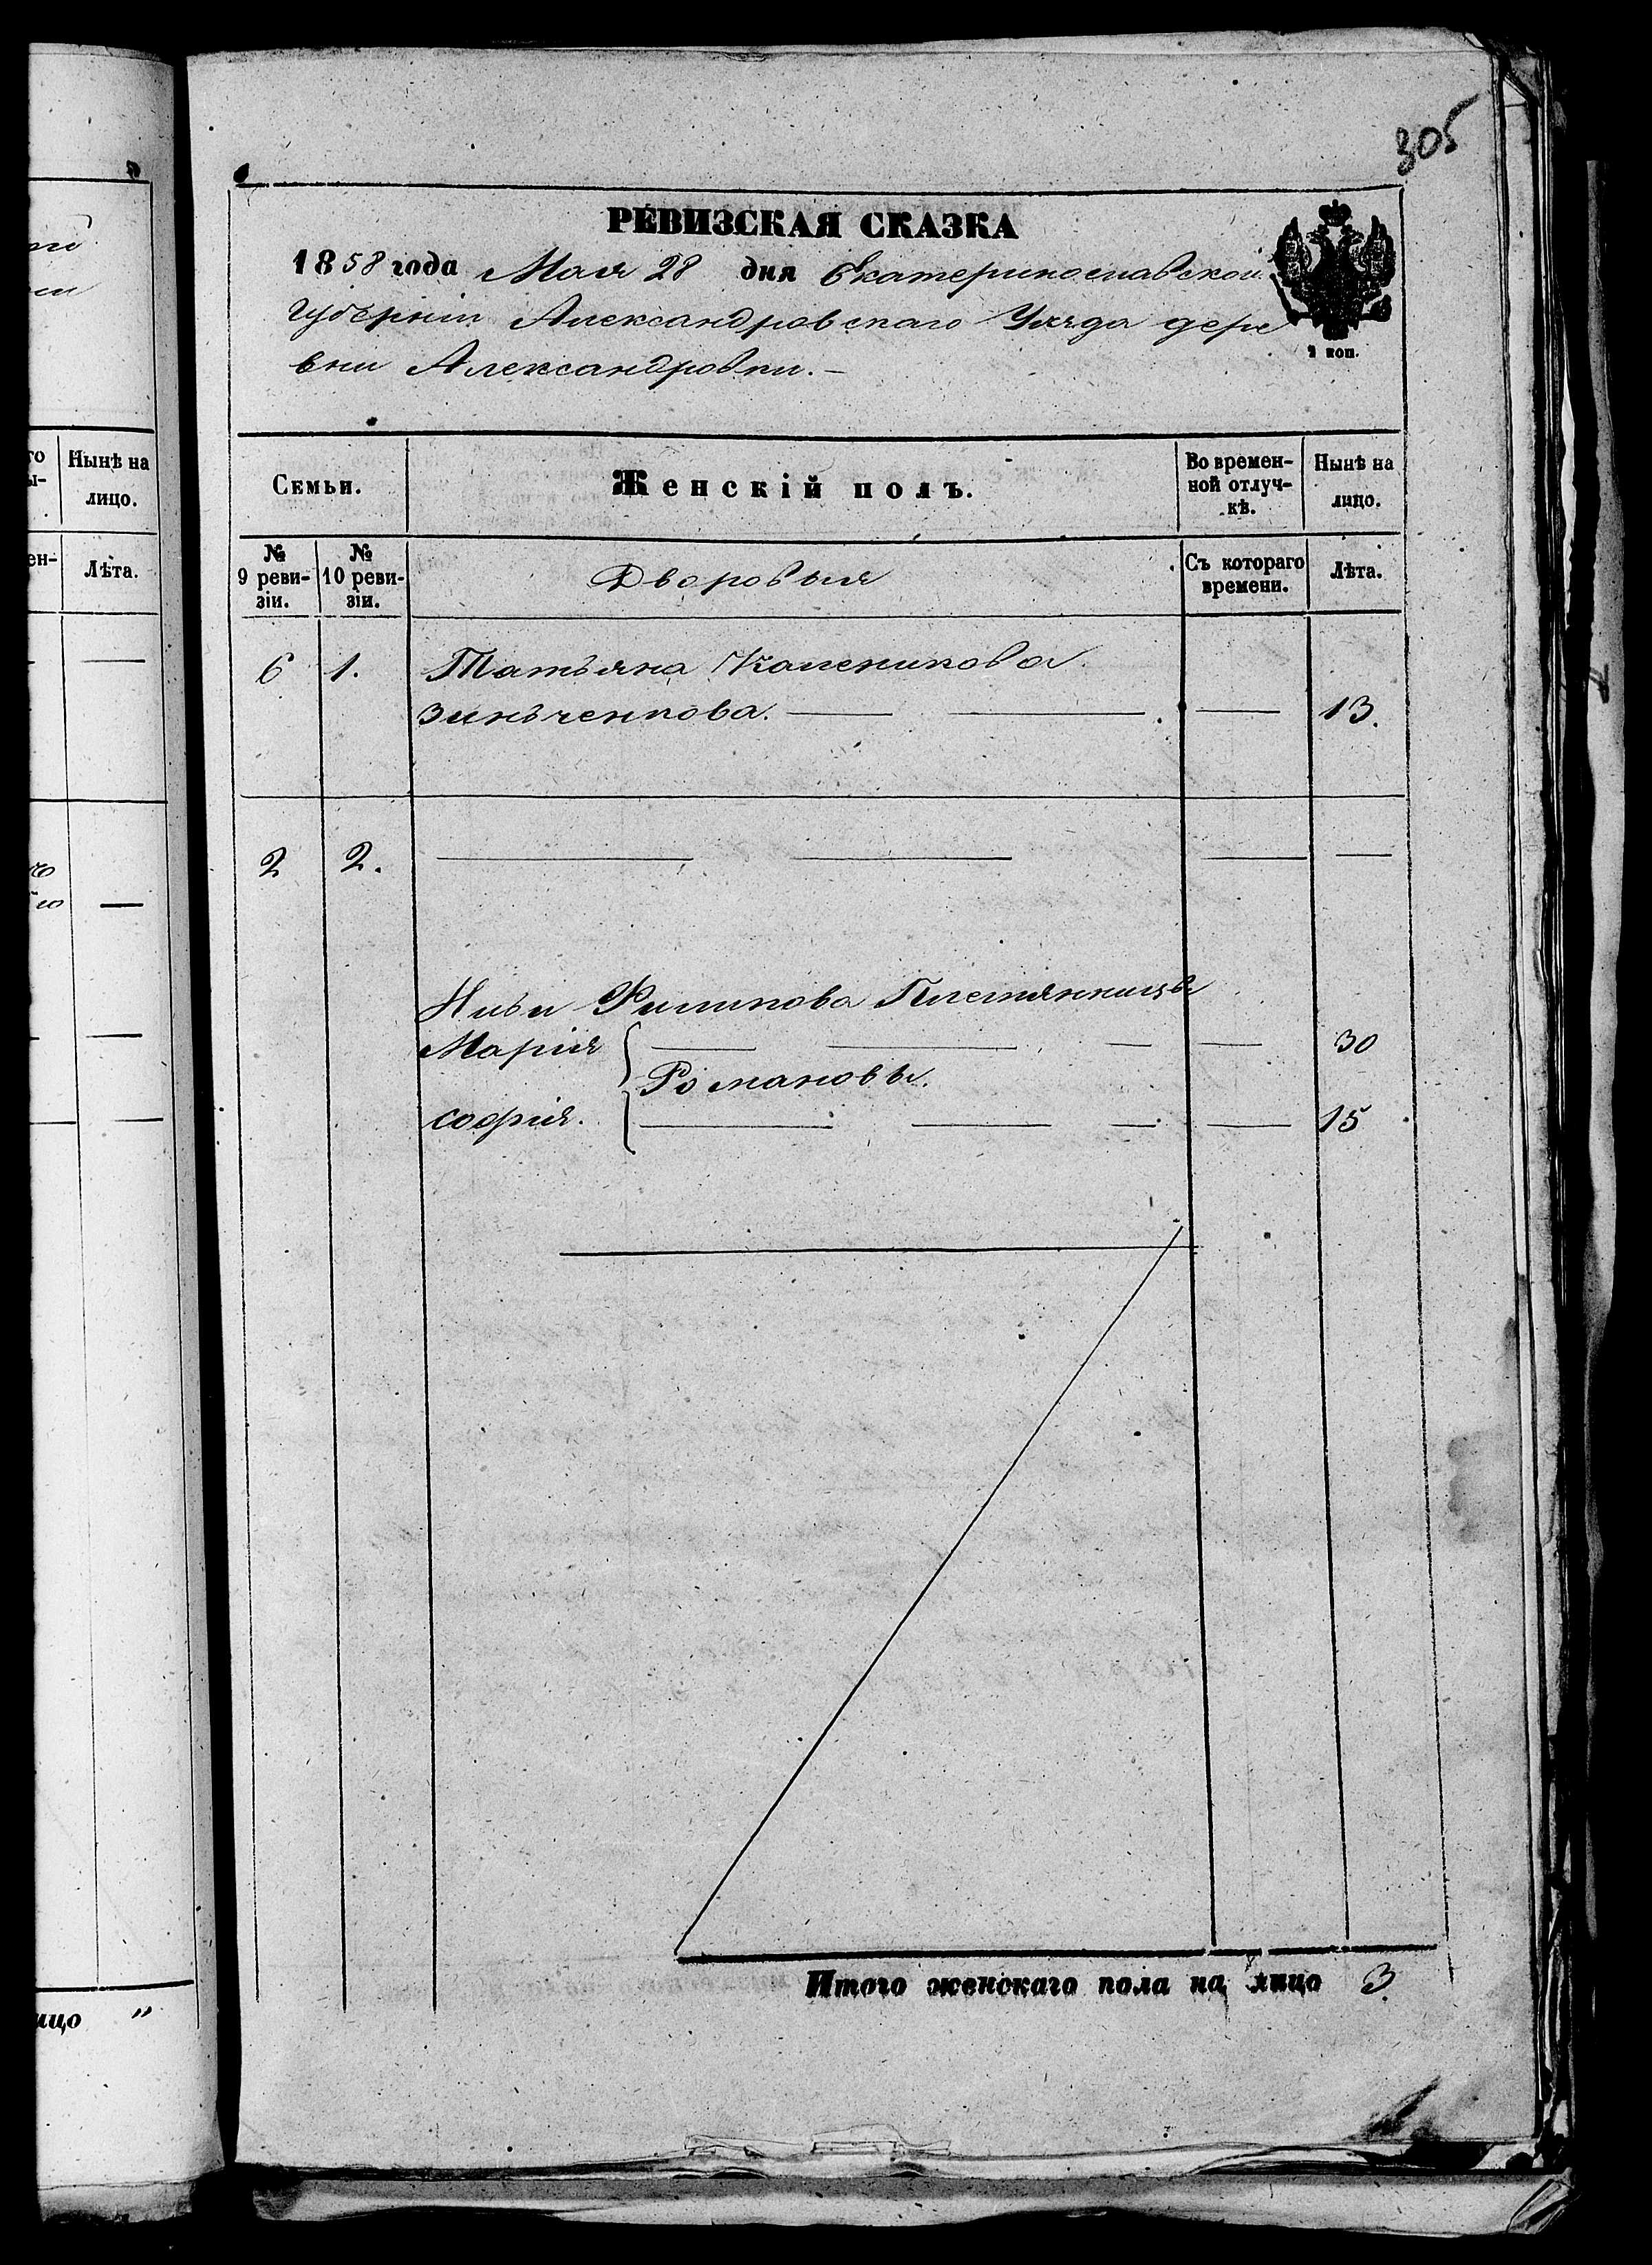 305
РЕВИЗСКАЯ СКАЗКА
1858 года Мая 28 дня Екатеринославской
Губерніи Александровскаго Уѣзда дере
вни Александровки.
1 коп.
Семьи.
Женскій полъ.
Во времен-
ной отлуч-
кѣ.
Нынѣ на
лицо.
№
9 реви-
зіи.
№
10 реви-
зіи.
Дворовыя
Съ котораго
времени.
Лѣта.
6 1. Татьяна Каленикова
Зинъченкова. 13.
2 2.
Ильи Филипова Племянницы
Марія 30
Романовы.
софія. 15
Итого женскаго пола на лицо 3.
Нынѣ на
лицо.
Лѣта.